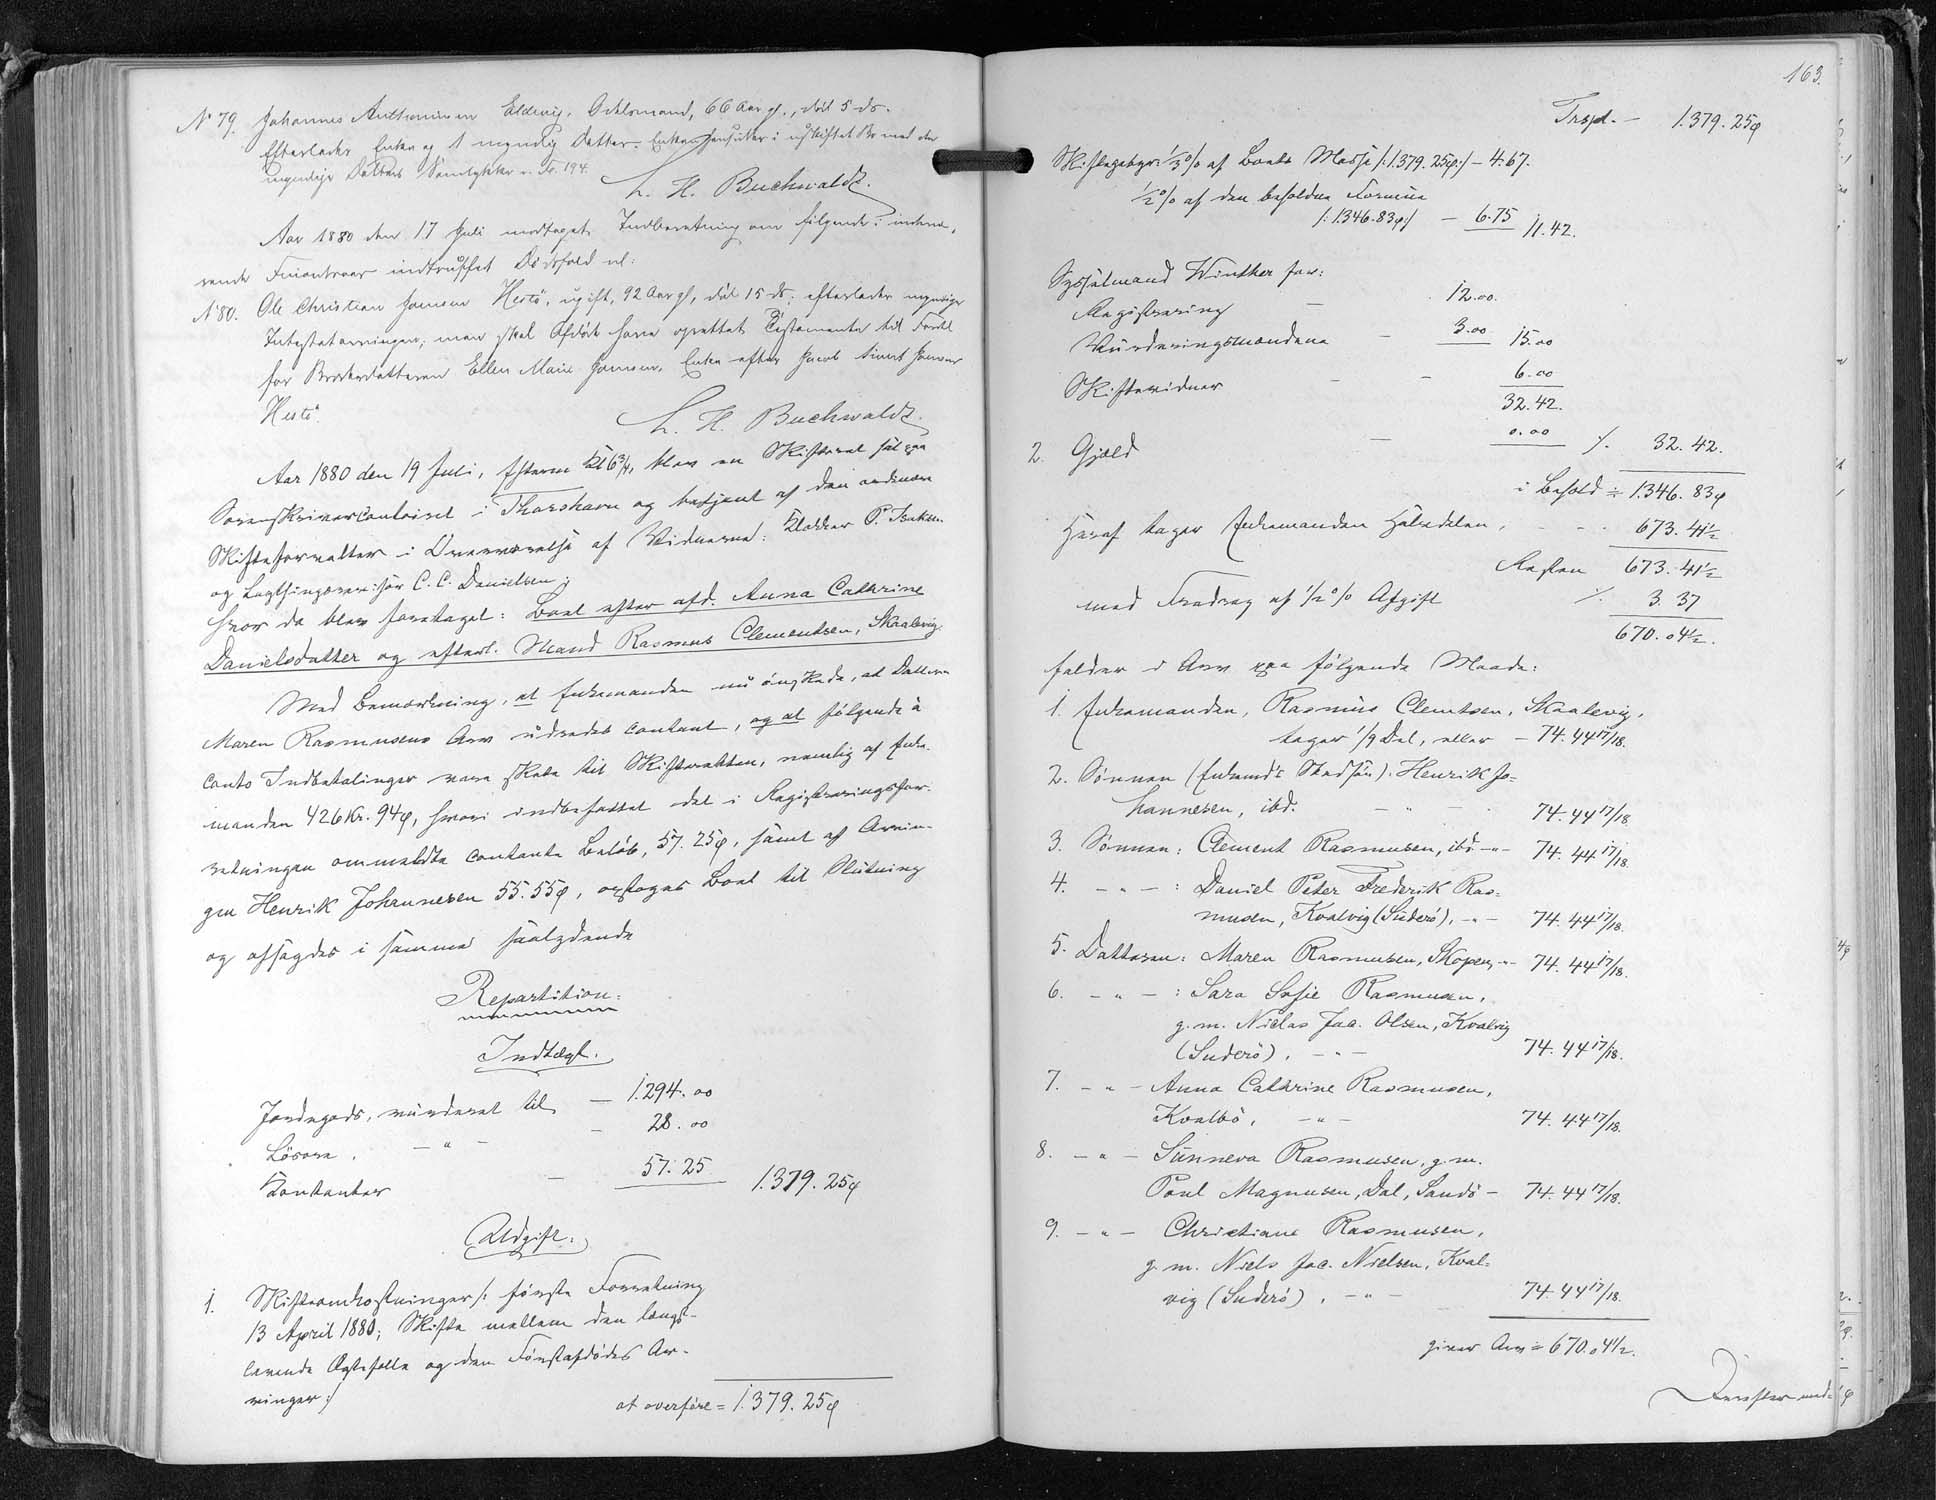 No 79. Johannes Anthonisen Eldevig, Odelsmand, 66 Aar gl., død 5 ds.
Efterlader Enke og 1 myndig Datter. Enken hensidder i uskiftet Bo med den
myndige Datters Samtykke v. Fr. 194.
L. H. Buchwaldt.
Aar 1880 den 17 Juli modtaget Indberetning om følgende i inde-
rende indtruffet Dødsfald nl:
No 80. Ole Christian Joensen Hestø, ugift, 92 Aar gl, død 15 ds; efterlader myndige
Intestatarvinger, men skal Afdøde have oprettet Testamente til Fordel
for Broderdatteren Ellen Marie Joensen, Enke efter Jacob Joensen
Hestø.
L. H. Buchwaldt.
Aar 1880 den 19 Juli, Efterm Kl 6¾, blev en Skifteret sat paa
Sorenskrivercontoiret i Thorshavn og betjent af den ordinære
Skifteforvalter i Overværelse af Vidnerne: Klokker P. Isaksen
og Lagthingsrevisor C. C. Danielsen;
hvor da blev foretaget: Boet efter afd. Anna Cathrine
Danielsdatter og efterl. Mand Rasmus Clementsen, Skaalevig.
Med Bemærkning, at Enkemanden nu ønskede, at Datteren
Maren Rasmusens Arv udredes contant, og at følgende à
conto Indbetalinger vare skete til Skifteretten, nemlig af Enke-
manden 426 Kr. 94 ø, hvori indbefattet det i Registreringsfor-
retningen ommeldte contante Beløb, 57. 25 ø, samt af Arvin-
gen Henrik Johannesen 55. 55 ø, optoges Boet til Slutning
og afsagdes i samme saalydende
Repartition:
Indtægt.
Jordegods, vurderet til, — 1294. 00
Løsøre, — " — — 28. 00
Contanter — 57. 25 1379. 25 ø
Udgift:
1. Skifteomkostninger /: første Forretning
13 April 1880; Skifte mellem den længst-
levende Ægtefælle og den Førstafdødes Ar-
vinger :/
at overføre = 1379. 25 ø
163.
Trspt. — 1379. 25 ø
Skiftegebyr: ⅓ % af Boets Masse /: 1379. 25 ø :/ — 4. 67.
½ % af den beholdne Formue
/: 1346. 83 ø :/ — 6. 75 11. 42.
Sysselmand Winther for:
Registrering — 12. 00.
Vurderingsmændene — 3. 00 15. 00
Skiftevidner — — 6. 00
32. 42.
2. Gjæld — 0. 00 ./. 32. 42.
i Behold = 1346. 83 ø
Heraf tager Enkemanden Halvdelen, - - - 673. 41½
Resten 673. 41½
med Fradrag af ½ % Afgift ./. 3. 37
670. 04½.
falder i Arv paa følgende Maade:
1. Enkemanden, Rasmus Clemtsen, Skaalevig,
tager 1/9 Del, eller — 74. 44 17/18.
2. Sønnen (Enkemd's Stedsøn): Henrik Jo-
hannesen, ibd. — " — 74. 44 17/18
3. Sønnen: Clement Rasmusen, ibd. — " — 74. 44 17/18
4. — " — : Daniel Peter Frederik Ras-
musen, Kvalvig (Suderø), — " — 74. 44 17/18.
5. Datteren: Maren Rasmusen, Skopen, — " — 74. 44 17/18.
6. — " — : Sara Sofie Rasmusen,
g. m. Niclas Jac. Olsen, Kvalvig
(Suderø), — " — 74. 44 17/18.
7. — " — Anna Cathrine Rasmusen,
Kvalbø, — " — 74. 44 17/18.
8. — " — Sunneva Rasmusen, g. m.
Poul Magnusen, Dal, Sandø — 74. 44 17/18.
9. — " — Christiane Rasmusen,
g. m. Niels Jac. Nielsen, Kval-
vig (Suderø), — " — 74. 44 17/18.
giver Arv = 670. 04½.
Derefter med-